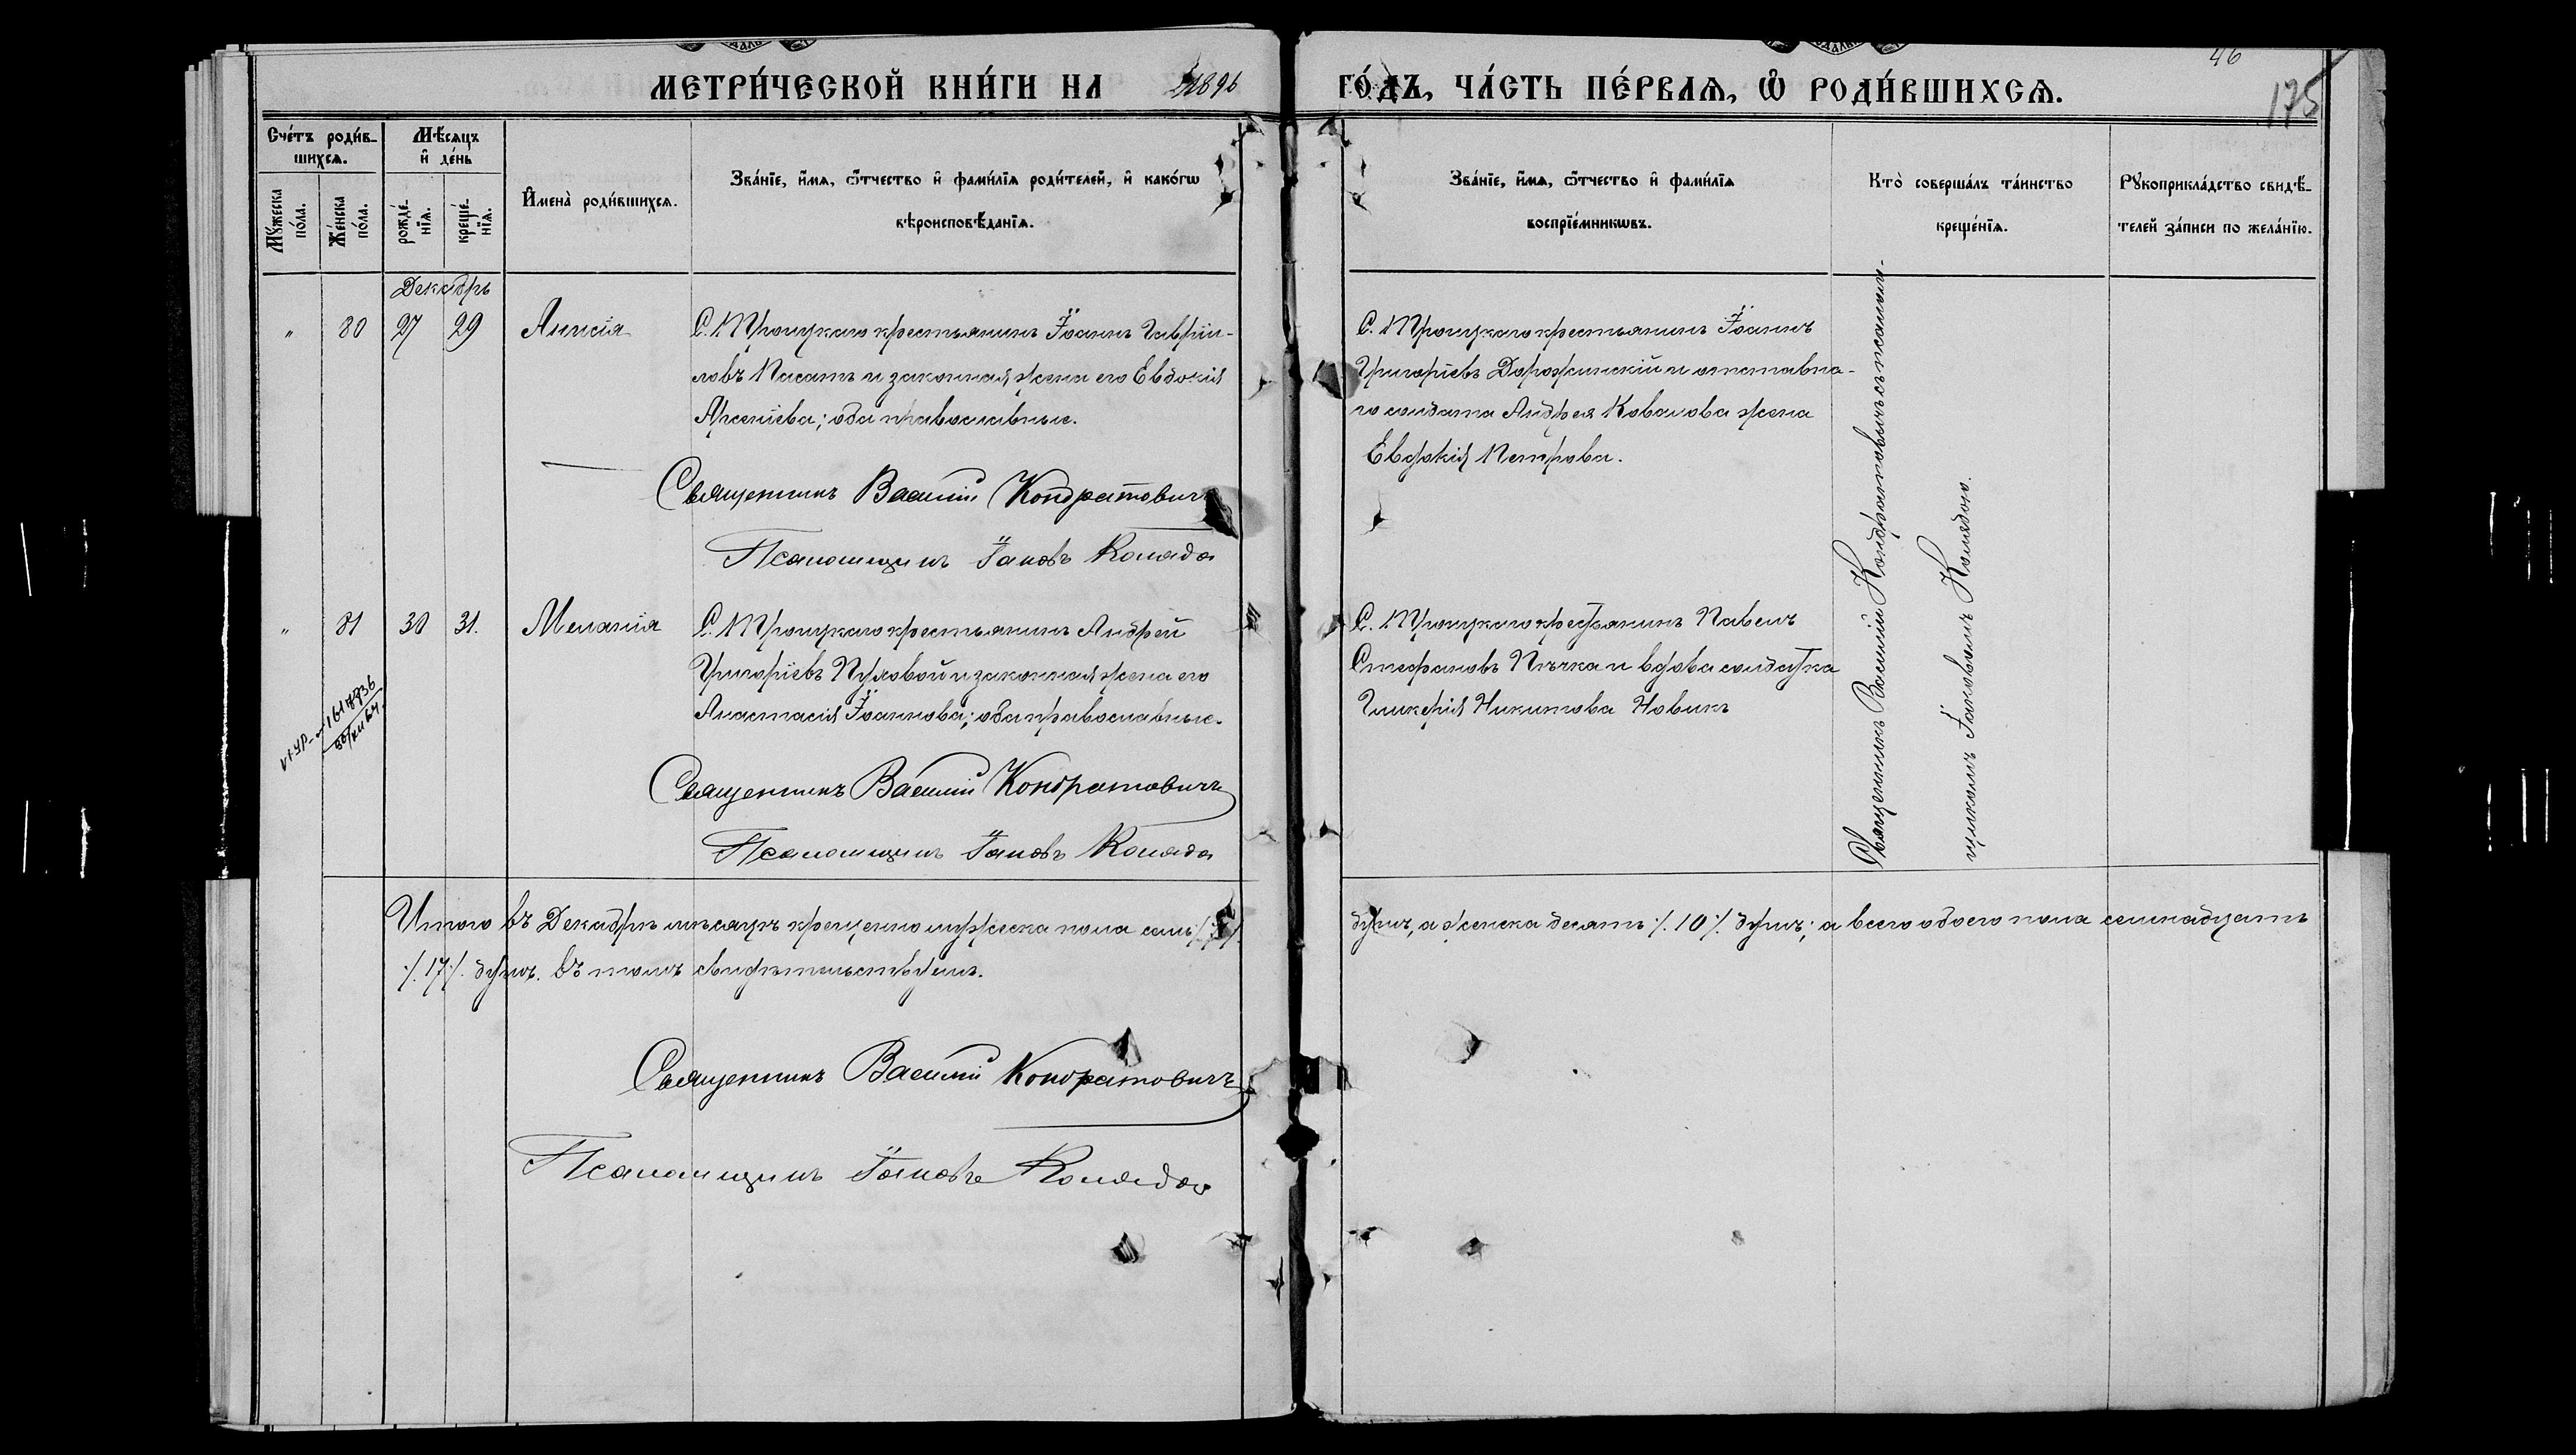 МЕТРИ́ЧЕСКОЙ КНИ́ГИ НА 1896 ГО́ДЪ, ЧА́СТЬ ПЕ́РВАѦ, Ѡ҆ РОДИ́ВШИХСѦ.
46
175
Сче́тъ роди́в-
шихсѧ.
Мꙋ́жеска
по́ла.
Же́нска
по́ла.
Мѣ́сѧцъ
и҆ де́нь
рожде́-
нїѧ.
креще́-
нїѧ.
И҆мена̀ роди́вшихсѧ.
Зва́нїе, и҆́мѧ, ѻ҆́тчество и҆ фами́лїѧ роди́телей, и҆ како́гѡ
вѣроисповѣ́данїѧ.
Зва́нїе, и҆́мѧ, ѻ҆́тчество и҆ фами́лїѧ
воспрїе́мникѡвъ.
Кто̀ соверша́лъ та́инство
креще́нїѧ.
Рꙋкоприкла́дство свидѣ́-
телей за́писи по жела́нїю.
Декабрь
" 80 27 29 Анисія
С. Троицкаго крестьянинъ Іоаннъ Гавріи-
ловъ Писать и законная жена его Евдокія
Арсеніева; оба православные.
Священникъ Василій Кондратовичъ
Псаломщикъ Іаковъ Коляда
С. Троицкаго крестьянинъ Іоаннъ
Григоріевъ Дорожинскій и отставна-
го солдата Андрея Ковалова жена
Евдокія Петрова.
Священникъ Василій Кондратовичъ съ псалом-
щикомъ Іаковомъ Колядою.
" 81 30 31. Меланія
С. Троицкаго крестьянинъ Андрей
Григоріевъ Пуловой и законная жена его
Анастасія Іоаннова; оба православные.
Священникъ Василій Кондратовичъ
Псаломщикъ Іаковъ Коляда
С. Троицкаго крестьянинъ Павелъ
Стефановъ Пѣчка и вдова солдатка
Гликерія Никитова Новикъ
Итого въ Декабрѣ мѣсяцѣ крещено мужеска пола семь /:7:/ душъ, а женска десять /:10:/ душъ; а всего обоего пола семнадцать
/:17:/ душъ. Въ томъ свидѣтельствуемъ.
Священникъ Василій Кондратовичъ
Псаломщикъ Іаковъ Коляда